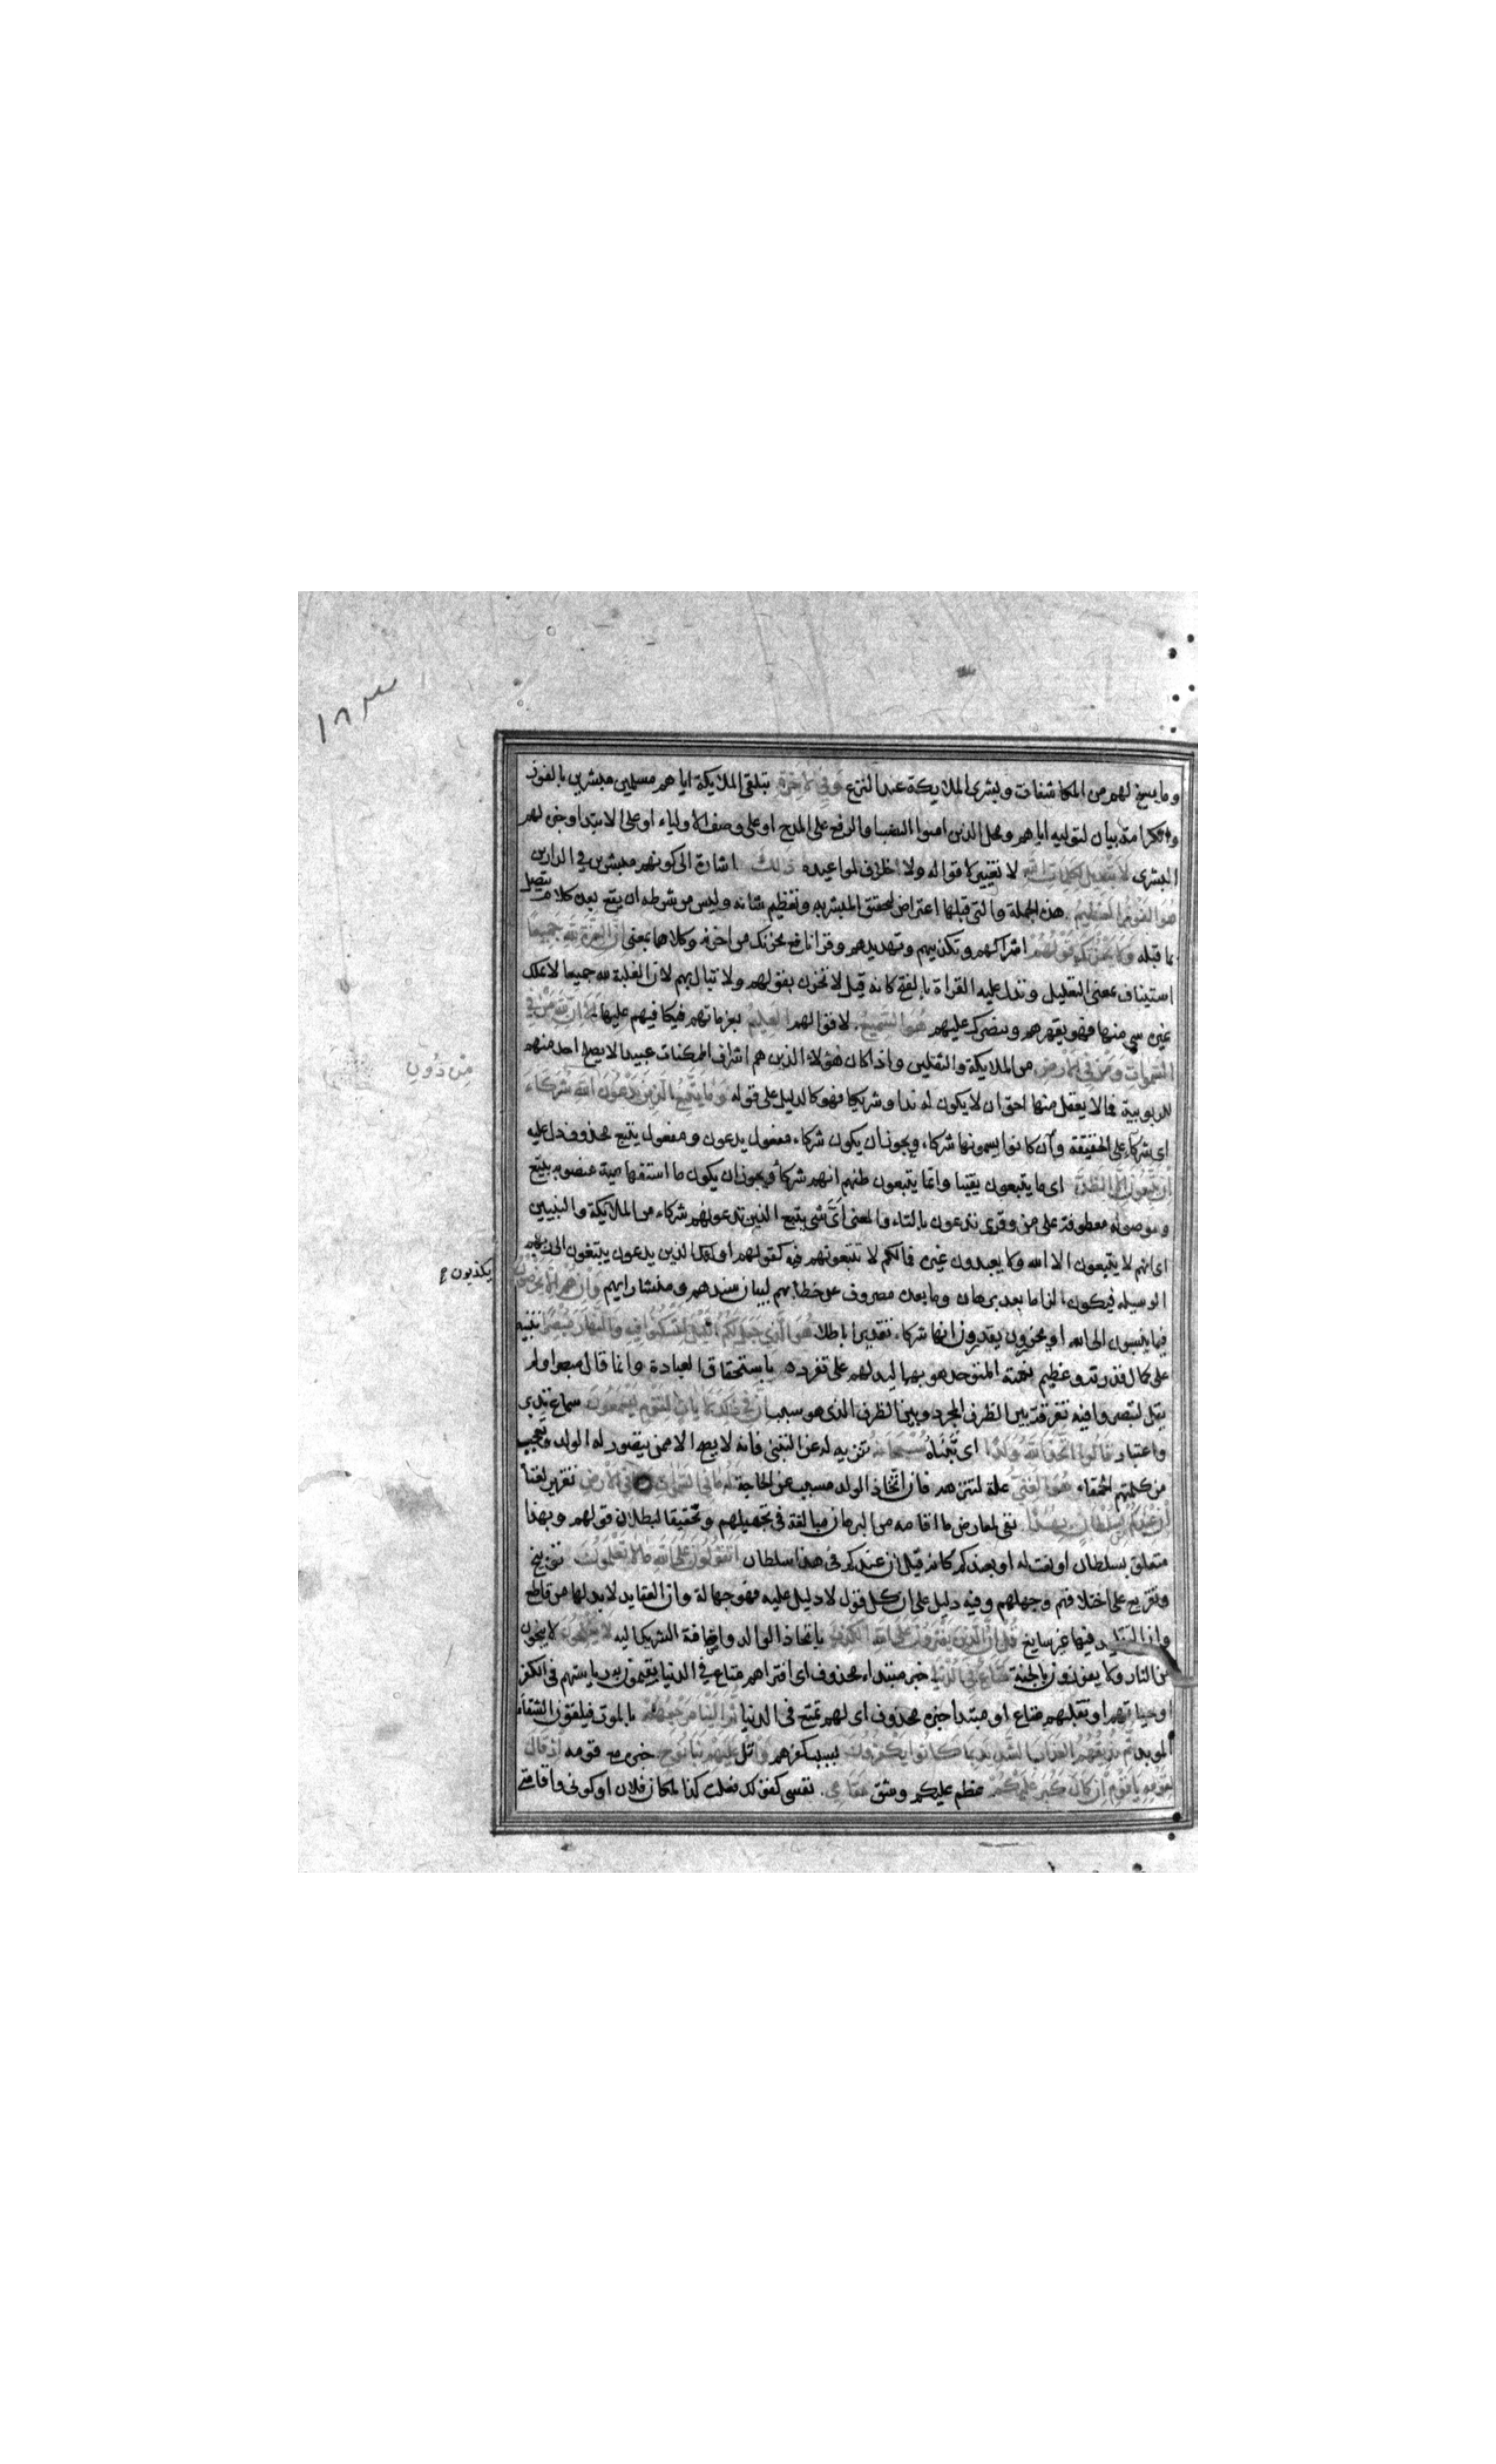 ١٨٣
وما يسنح لهم من المكاشفات وبشرى الملايكة عند النزع وفي الاخرة بتلقى الملايكة اياهم مسلمين مبشرين بالفوز
والكرامة بيان لتوليه اياهم ومحل الذين امنوا النصب او الرفع على المدح او على وصف الاولياء او على الابتداء وخبره لهم
البشرى لا تبديل لكلمات الله لا تغيير لاقواله ولا اخلاف لمواعيده ذلك اشارة الى كونهم مبشرين في الدارين
هو الفوز العظيم هذه الجملة والتي قبلها اعتراض لتحقيق المبشر به وتعظيم شانه وليس من شرطه ان يقع بعده كلام يتصل
بما قبله ولا يحزنك قولهم اشراكهم وتكذيبهم وتهديدهم وقرا نافع يحزنك من احزنه وكلاهما بمعنى ان العزة لله جميعا
استيناف بمعنى التعليل ويدل عليه القراة بالفتح كانه قيل لا تحزن بقولهم ولا تبال بهم لان الغلبة لله جميعا لا يملك
غيره شي منها فهو يقهرهم وينصرك عليهم هو السميع لاقوالهم العليم بعزماتهم فيكافيهم عليها الا ان لله من في
السموات ومن في الارض من الملايكة والثقلين واذا كان هؤلاء الذين هم اشرف الممكنات عبيدا لا يصلح احد منهم
للربوبية فما لا يعقل منها احق ان لا يكون له ندا وشريكا فهو كالدليل على قوله وما يتبع الذين يدعون الله شركاء
من دون
اى شركاء على الحقيقة وان كانوا يسمونها شركاء ويجوز ان يكون شركاء مفعول يدعون ومفعول يتبع محذوف دل عليه
ان يتبعون الا الظن اى ما يتبعون يقينا وانما يتبعون ظنهم انهم شركاء ويجوز ان يكون ما استفهامية منصوبه بيتبع
وموصولة معطوفة على من وقرى تدعون بالتاء والمعنى اى شي يتبع الذين تدعونهم شركاء من الملائكة والنبيين
اى انهم لا يتبعون الا الله ولا يعبدون غيره فما لكم لا تتبعونهم فيه كقولهم اولئك الذين يدعون يبتغون الى ربهم
الوسيله فيكون الزاما بعد برهان وما بعده مصروف عن خطابهم لبيان سندهم ومنشا رايهم وان هم الا يخرصون
يكذبون
فيما ينسبون الى الله او يحزرون ويقدرون انها شركاء تقديرا باطلا هو الذي جعل لكم الليل لتسكنوا فيه والنهار مبصرا تنبيه
على كمال قدرته وعظيم نعمته المتوحد هو بهما ليدلهم على تفرده باستحقاق العبادة وانما قال مبصرا ولم
يقل لتبصروا فيه تفرقة بين الظرف المجرد وبين الظرف الذى هو سبب ان في ذلك لايات لقوم يسمعون سماع تدبر
واعتبار قالوا اتخذ الله ولدا اى تبناه سبحانه تنزيه له عن التبنى فانه لا يصح الا ممن يتصور له الولد وتعجب
من كلمتهم الحمقاء هو الغني علة لتنزهه فان اتخاذ الولد مسبب عن الحاجة له ما في السموات وما في الارض تقرير لغناه
ان عندكم من سلطان بهذا نفى لمعارض ما اقامه من البرهان مبالغة في تجهيلهم وتحقيقا لبطلان قولهم وبهذا
متعلق بسلطان او نعت له او بعندكم كانه قيل ان عندكم في هذا سلطان اتقولون على الله ما لا تعلمون توبيخ
وتقريع على اختلاقهم وجهلهم وفيه دليل على ان كل قول لا دليل عليه فهو جهالة وان العقايد لابد لها من قاطع
وان التقليد فيها غير سايغ قل ان الذين يفترون على الله الكذب باتخاذ الولد واضافة الشريك اليه لا يفلحون لا ينجون
من النار ولا يفوزون بالجنة متاع في الدنيا خبر مبتداء محذوف اى افتراهم متاع في الدنيا يقيمون به رياستهم في الكفر
او حياتهم او تقلبهم متاع او مبتدا خبره محذوف اى لهم تمتع في الدنيا ثم الينا مرجعهم بالموت فيلقون الشقاء
الموبد ثم نذيقهم العذاب الشديد بما كانوا يكفرون بسبب كفرهم واتل عليهم نبا نوح خبره مع قومه اذ قال
لقومه يا قوم ان كان كبر عليكم عظم عليكم وشق مقامي نفسى كقولك فعلت كذا لمكان فلان او كونى واقامتى